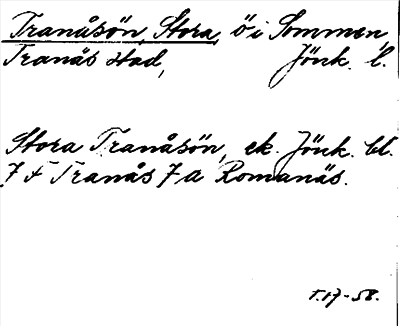 Tranåsön, Stora, ö i Sommen,
Tranås stad, Jönk. l.
Stora Tranåsön, ek. Jönk. bl.
7 F Tranås 7 a Romanäs.
T.17-58.